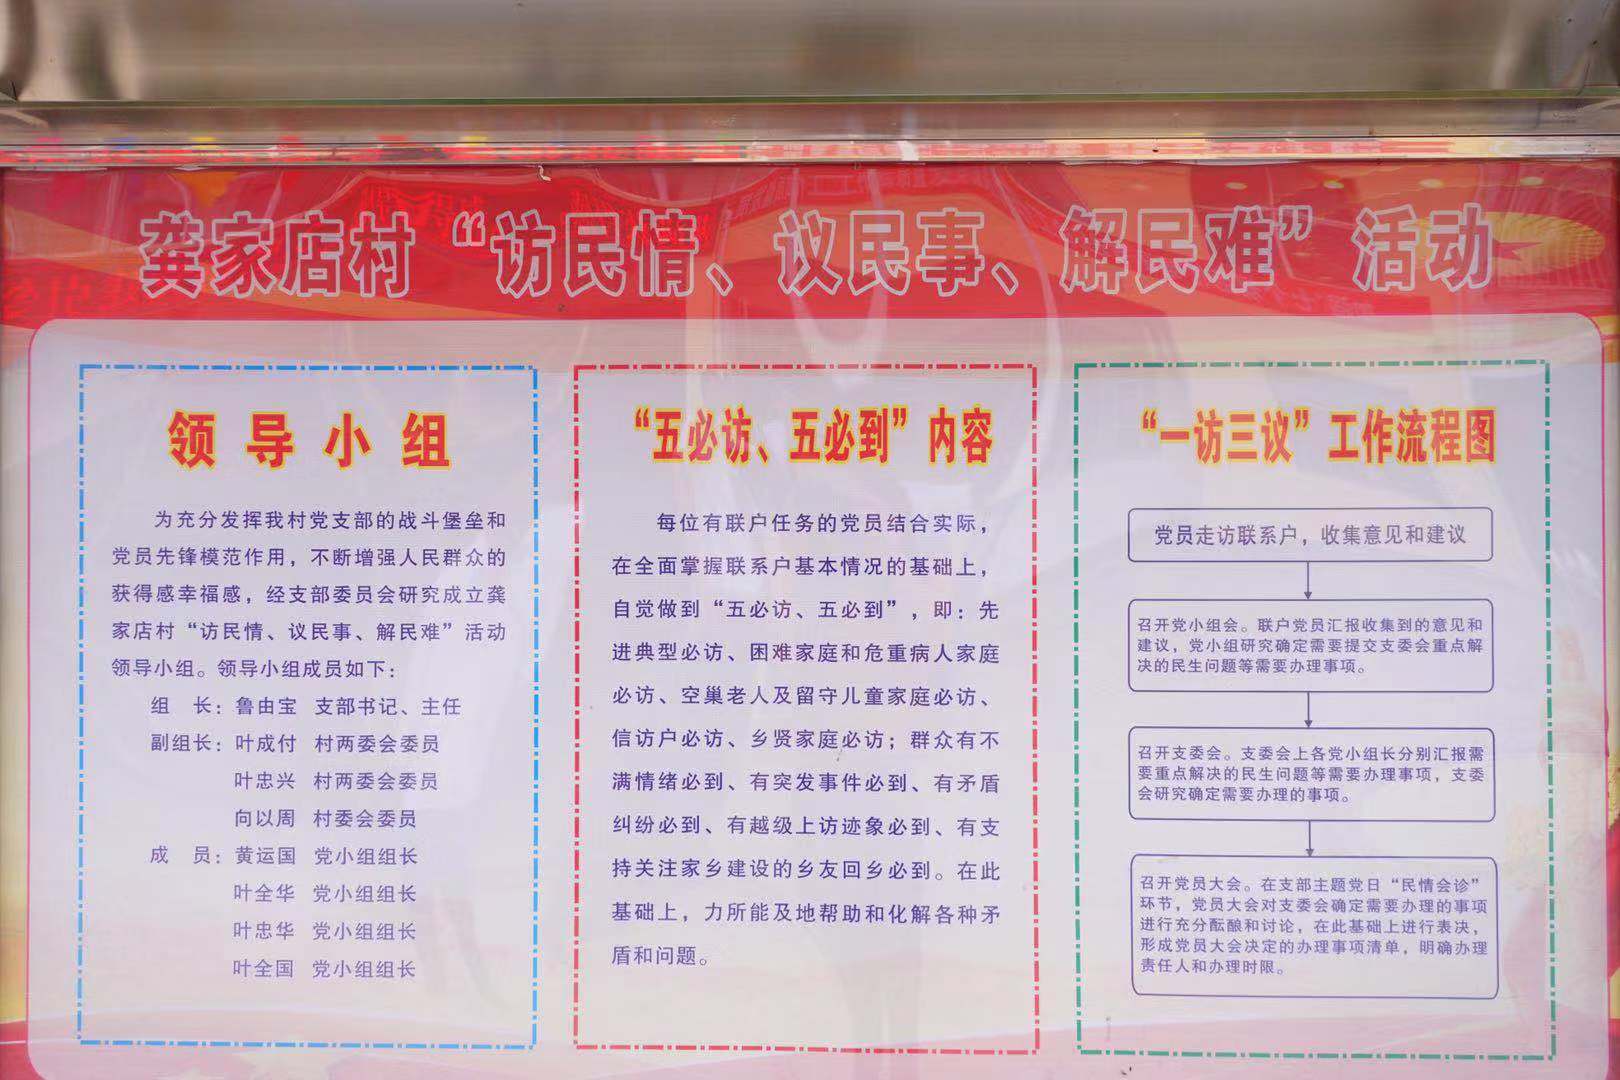 龚家店村“访民情、议民事、解民难”活动
领导小组
为充分发挥我村党支部的战斗堡垒和
党员先锋模范作用，不断增强人民群众的
获得感幸福感，经支部委员会研究成立龚
家店村“访民情、议民事、解民难”活动
领导小组。领导小组成员如下：
组　长：鲁由宝　支部书记、主任
副组长：叶成付　村两委会委员
叶忠兴　村两委会委员
向以周　村委会委员
成　员：黄运国　党小组组长
叶全华　党小组组长
叶忠华　党小组组长
叶全国　党小组组长
“五必访、五必到”内容
每位有联户任务的党员结合实际，
在全面掌握联系户基本情况的基础上，
自觉做到“五必访、五必到”，即：先
进典型必访、困难家庭和危重病人家庭
必访、空巢老人及留守儿童家庭必访、
信访户必访、乡贤家庭必访；群众有不
满情绪必到、有突发事件必到、有矛盾
纠纷必到、有越级上访迹象必到、有支
持关注家乡建设的乡友回乡必到。在此
基础上，力所能及地帮助和化解各种矛
盾和问题。
“一访三议”工作流程图
党员走访联系户，收集意见和建议
召开党小组会。联户党员汇报收集到的意见和
建议，党小组研究确定需要提交支委会重点解
决的民生问题等需要办理事项。
召开支委会。支委会上各党小组长分别汇报需
要重点解决的民生问题等需要办理事项，支委
会研究确定需要办理的事项。
召开党员大会。在支部主题党日“民情会诊”
环节，党员大会对支委会确定需要办理的事项
进行充分酝酿和讨论，在此基础上进行表决，
形成党员大会决定的办理事项清单，明确办理
责任人和办理时限。